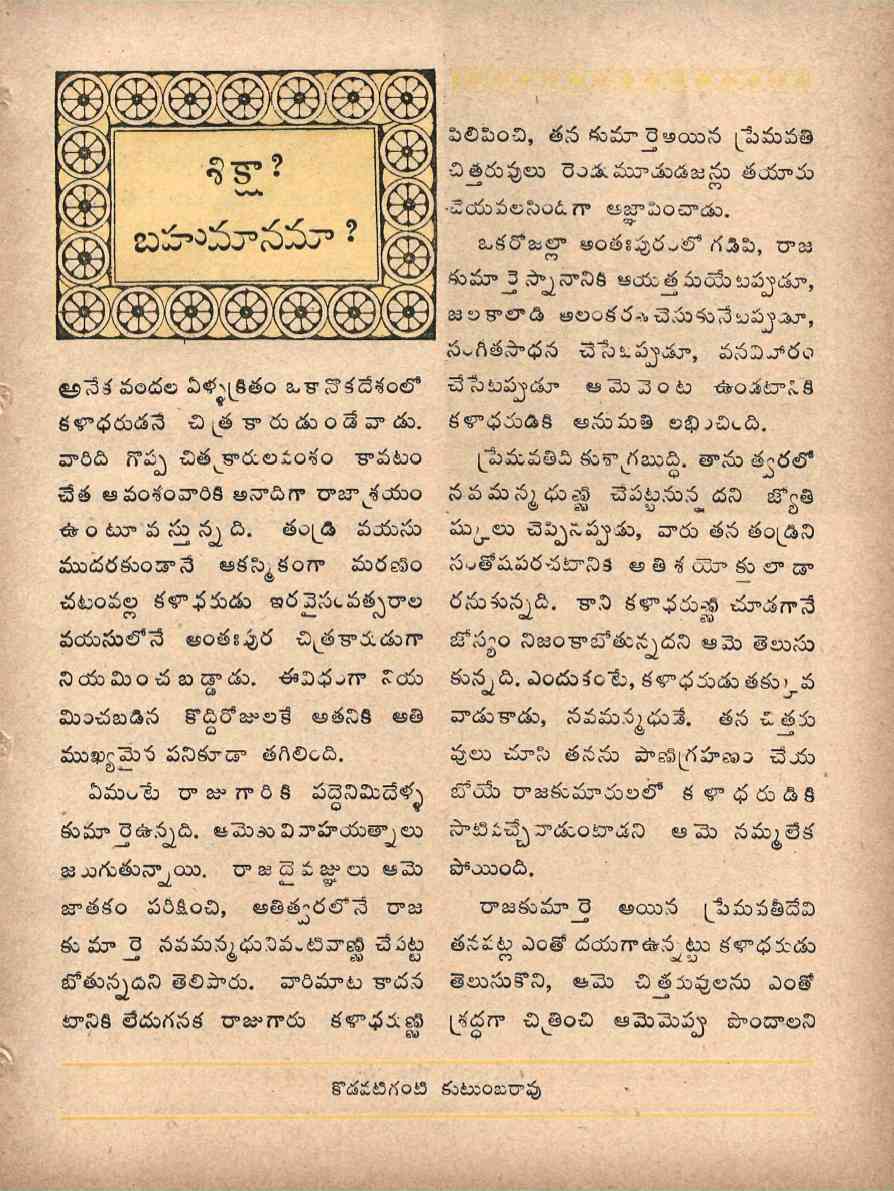 శిక్షా?
బహుమానమా?
అనేక వందల ఏళ్ళక్రితం ఒకానొకదేశంలో
కళాధరుడనే చిత్రకారుడుండేవాడు.
వారిది గొప్ప చిత్రకారులవంశం కావటం
చేత ఆ వంశంవారికి అనాదిగా రాజాశ్రయం
ఉంటూ వస్తున్నది. తండ్రి వయసు
ముదరకుండానే ఆకస్మికంగా మరణిం
చటంవల్ల కళాధరుడు ఇరవైసంవత్సరాల
వయసులోనే అంతఃపుర చిత్రకారుడుగా
నియమించబడ్డాడు. ఈవిధంగా నియ
మించబడిన కొద్దిరోజులకే అతనికి అతి
ముఖ్యమైన పనికూడా తగిలింది.
ఏమంటే రాజుగారికి పద్ధెనిమిదేళ్ళ
కుమార్తెఉన్నది. ఆమెఖు వివాహయత్నాలు
జరుగుతున్నాయి. రాజదైవజ్ఞులు ఆమె
జాతకం పరీక్షించి, అతిత్వరలోనే రాజ
కుమార్తె నవమన్మధునివంటివాణ్ణి చేపట్ట
బోతున్నదని తెలిపారు. వారిమాట కాదన
టానికి లేదుగనక రాజుగారు కళాధరుణ్ణి
పిలిపించి, తన కుమార్తెఅయిన ప్రేమవతి
చిత్తరువులు రెండుమూడుడజన్లు తయారు
చేయవలసిందిగా ఆజ్ఞాపించాడు.
ఒకరోజల్లా అంతఃపురంలో గడిపి, రాజ
కుమార్తె స్నానానికి ఆయత్తమయేటప్పుడూ,
జలకాలాడి అలంకరణచేసుకునేటప్పుడూ,
సంగీతసాధన చేసేటప్పుడూ, వనవిహారం
చేసేటప్పుడూ ఆమెవెంట ఉండటానికి
కళాధరుడికి అనుమతి లభించింది.
ప్రేమవతిది కుశాగ్రబుద్ధి. తాను త్వరలో
నవమన్మధుణ్ణి చేపట్టనున్నదని జ్యోతి
ష్కులు చెప్పినప్పుడు, వారు తన తండ్రిని
సంతోషపరచటానికి అతిశయోక్తులాడా
రనుకున్నది. కాని కళాధరుణ్ణి చూడగానే
జోస్యం నిజంకాబోతున్నదని ఆమె తెలుసు
కున్నది. ఎందుకంటే, కళాధరుడు తక్కువ
వాడుకాడు, నవమన్మధుడే. తన చిత్తరు
వులు చూసి తనను పాణిగ్రహణం చేయ
బోయే రాజకుమారులలో కళాధరుడికి
సాటివచ్చేవాడుంటాడని ఆమె నమ్మలేక
పోయింది.
రాజకుమార్తె అయిన ప్రేమవతీదేవి
తనపట్ల ఎంతో దయగాఉన్నట్టు కళాధరుడు
తెలుసుకొని, ఆమె చిత్తరువులను ఎంతో
శ్రద్ధగా చిత్రించి ఆమెమెప్పు పొందాలని
కొడవటిగంటి కుటుంబరావు